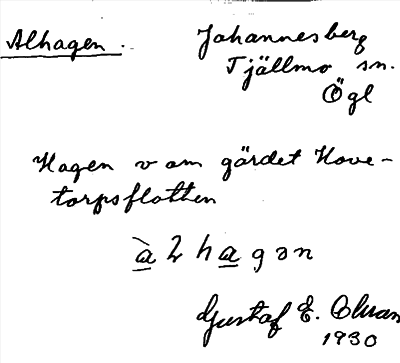 Alhagen.
Johannesberg
Tjällmo sn.
Ögl
Hagen v om gärdet Hove-
torpsflotten
àlhagən
Gustaf E.
1930